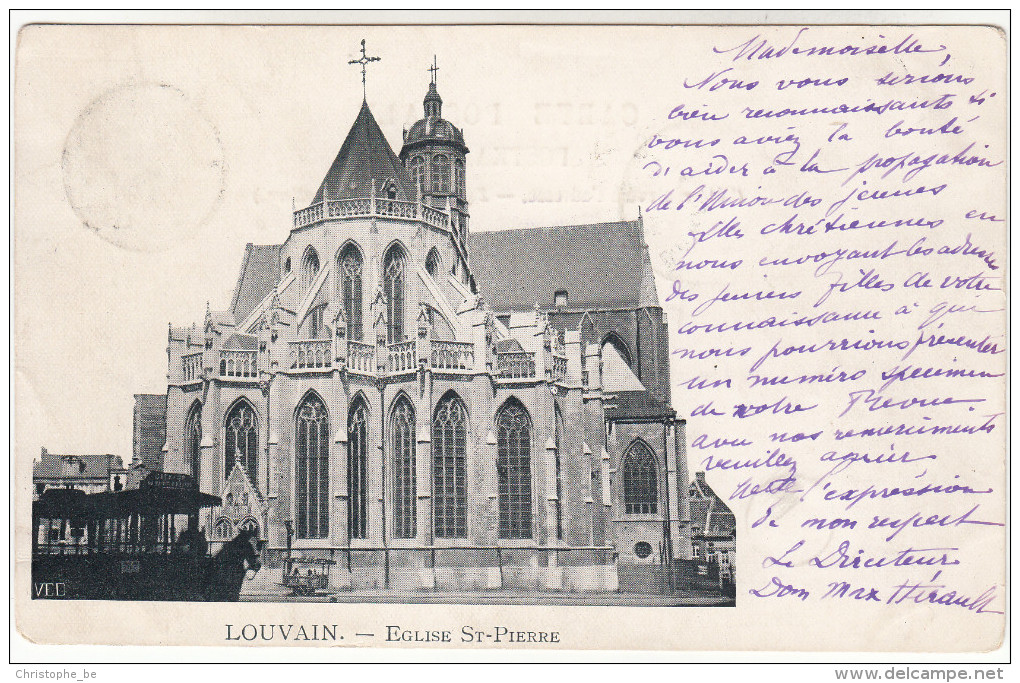 Mademoiselle,
Nous vous serions
bien reconnaissants si
vous aviez la bonté
d'aider à la propagation
de l'Union des jeunes
filles chrétiennes en
nous envoyant les adresses
des jeunes filles de votre
connaissance à qui
nous pourrions présenter
un numéro specimen
de notre Revue.
avec nos remerciements
veuillez agréer
l'expression
de mon respect
Le Directeur
Dom Max Hérault
VED
LOUVAIN. — EGLISE ST-PIERRE
Christophe_be
www.delcampe.net